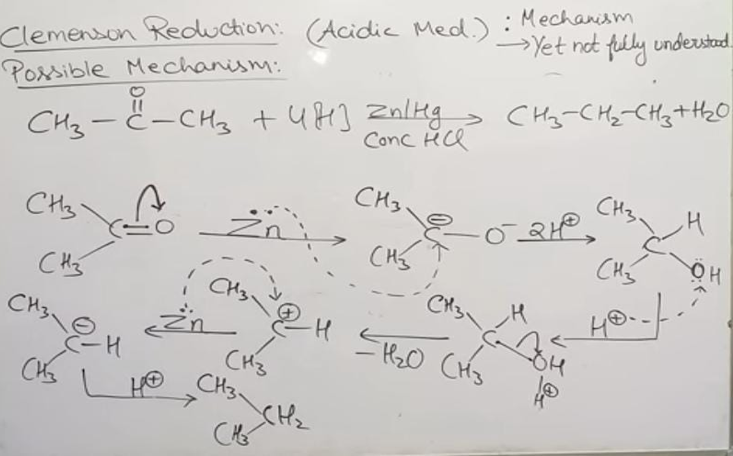 Clemenson Reduction: (Acidic Med.) : Mechanism
→ Yet not fully understood.
Possible Mechanism:
O
CH3 – C – CH3 + 4[H] Zn/Hg Conc HCl → CH3–CH2–CH3 + H2O
CH3 CH3 C=O Zn → CH3 CH3 C⊖ – O⁻ 2H⊕ → CH3 CH3 C H ÖH
CH3 CH3 C⊖–H ← Zn CH3 CH3 C⊕–H ← –H2O CH3 CH3 C H OH H⊕ ← H⊕
H⊕ → CH3 CH3 CH2